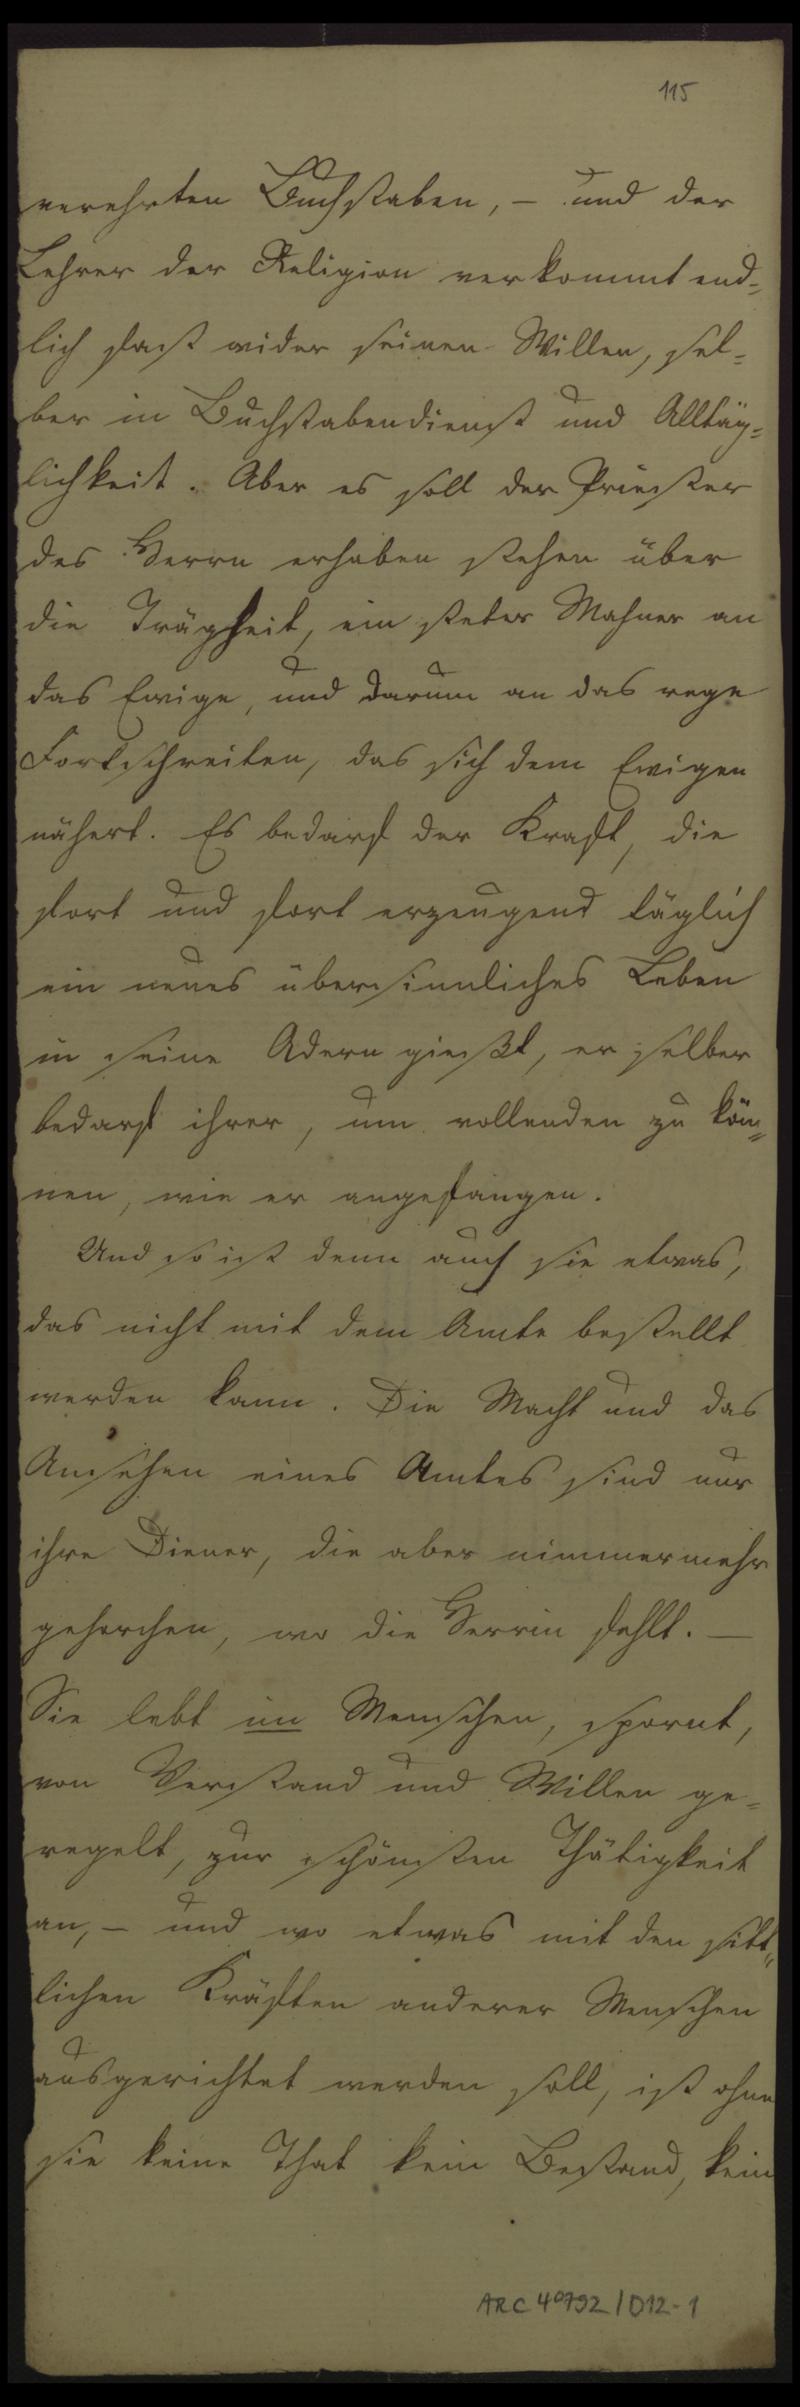 115
verehrten Buchstaben, – und der
Lehrer der Religion verkommt end=
lich fast wider seinen Willen, sel=
ber in Buchstabendienst und Alltäg=
lichkeit. Aber es soll der Priester
des Herrn erhaben stehen über
die Trägheit, ein steter Mahner an
das Ewige, und darum an das rege
Fortschreiten, das sich dem Ewigen
nähert. Es bedarf der Kraft, die
fort und fort erzeugend täglich
ein neues übersinnliches Leben
in seine Adern gießt, er selber
bedarf ihrer, um vollenden zu kön=
nen, wie er angefangen.
Und so ist denn auch sie etwas,
das nicht mit dem Amte bestellt
werden kann. Die Macht und das
Ansehen eines Amtes sind nur
ihre Diener, die aber nimmermehr
gehorchen, wo die Herrin fehlt. —
Sie lebt im Menschen, spornt,
von Verstand und Willen ge=
regelt, zur schönsten Thätigkeit
an, – und wo etwas mit den sitt=
lichen Kräften anderer Menschen
ausgerichtet werden soll, ist ohne
sie keine That kein Bestand, kein
ARC 4°792/D12-1